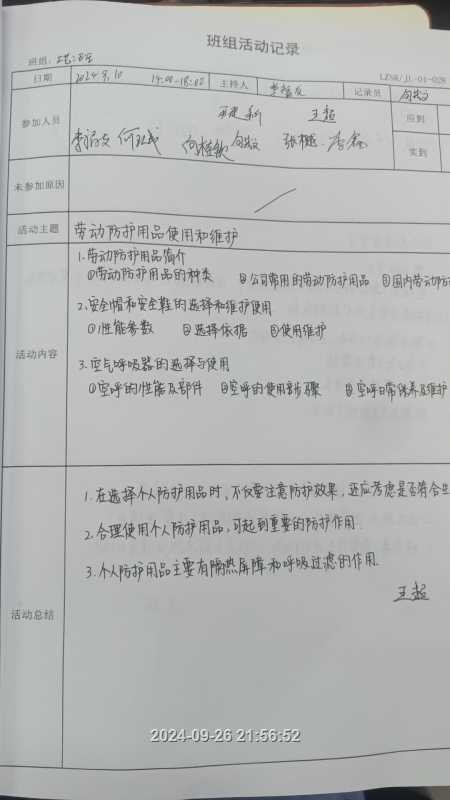 班组活动记录
班组: 工艺二班
LZSR/JL-04-028
日期 2024.9.10 14:00-18:00 主持人 李福友 记录员 向哲文
参加人员 王超 应到
李福友 向桂钦 向哲文 张樾 李鑫 实到
未参加原因
活动主题 劳动防护用品使用和维护
活动内容
1.劳动防护用品简介
①劳动防护用品的种类 ②公司常用的劳动防护用品 ③国内劳动防
2.安全帽和安全鞋的选择和维护使用
①性能参数 ②选择依据 ③使用维护
3.空气呼吸器的选择与使用
①空呼的性能及部件 ②空呼的使用步骤 ③空呼日常保养及维护
活动总结
1.在选择个人防护用品时、不仅要注意防护效果,还应考虑是否符合生
2.合理使用个人防护用品,可起到重要的防护作用.
3.个人防护用品主要有隔热屏障和呼吸过滤的作用.
王超
2024-09-26 21:56:52